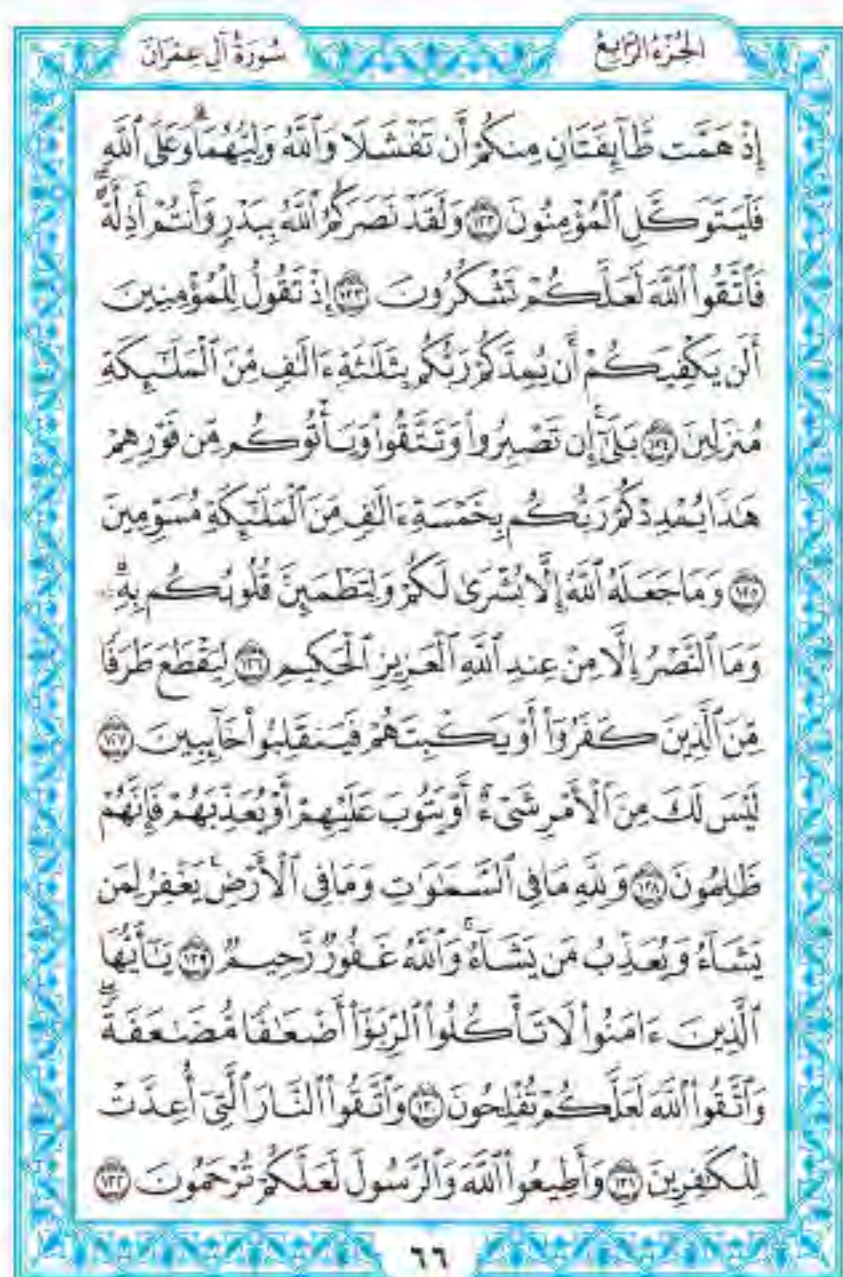 الجزء الرابع
سورة آل عمران
إِذْ هَمَّت طَّآئِفَتَانِ مِنكُمْ أَن تَفْشَلَا وَٱللَّهُ وَلِيُّهُمَاۗ وَعَلَى ٱللَّهِ
فَلْيَتَوَكَّلِ ٱلْمُؤْمِنُونَ ١٢٢ وَلَقَدْ نَصَرَكُمُ ٱللَّهُ بِبَدْرٍ وَأَنتُمْ أَذِلَّةٌۖ
فَٱتَّقُوا۟ ٱللَّهَ لَعَلَّكُمْ تَشْكُرُونَ ١٢٣ إِذْ تَقُولُ لِلْمُؤْمِنِينَ
أَلَن يَكْفِيَكُمْ أَن يُمِدَّكُمْ رَبُّكُم بِثَلَٰثَةِ ءَالَٰفٍ مِّنَ ٱلْمَلَٰٓئِكَةِ
مُنزَلِينَ ١٢٤ بَلَىٰٓۚ إِن تَصْبِرُوا۟ وَتَتَّقُوا۟ وَيَأْتُوكُم مِّن فَوْرِهِمْ
هَٰذَا يُمْدِدْكُمْ رَبُّكُم بِخَمْسَةِ ءَالَٰفٍ مِّنَ ٱلْمَلَٰٓئِكَةِ مُسَوِّمِينَ
١٢٥ وَمَا جَعَلَهُ ٱللَّهُ إِلَّا بُشْرَىٰ لَكُمْ وَلِتَطْمَئِنَّ قُلُوبُكُم بِهِۦۗ
وَمَا ٱلنَّصْرُ إِلَّا مِنْ عِندِ ٱللَّهِ ٱلْعَزِيزِ ٱلْحَكِيمِ ١٢٦ لِيَقْطَعَ طَرَفًا
مِّنَ ٱلَّذِينَ كَفَرُوٓا۟ أَوْ يَكْبِتَهُمْ فَيَنقَلِبُوا۟ خَآئِبِينَ ١٢٧
لَيْسَ لَكَ مِنَ ٱلْأَمْرِ شَىْءٌ أَوْ يَتُوبَ عَلَيْهِمْ أَوْ يُعَذِّبَهُمْ فَإِنَّهُمْ
ظَٰلِمُونَ ١٢٨ وَلِلَّهِ مَا فِى ٱلسَّمَٰوَٰتِ وَمَا فِى ٱلْأَرْضِۚ يَغْفِرُ لِمَن
يَشَآءُ وَيُعَذِّبُ مَن يَشَآءُۚ وَٱللَّهُ غَفُورٌ رَّحِيمٌ ١٢٩ يَٰٓأَيُّهَا
ٱلَّذِينَ ءَامَنُوا۟ لَا تَأْكُلُوا۟ ٱلرِّبَوٰٓا۟ أَضْعَٰفًا مُّضَٰعَفَةًۖ
وَٱتَّقُوا۟ ٱللَّهَ لَعَلَّكُمْ تُفْلِحُونَ ١٣٠ وَٱتَّقُوا۟ ٱلنَّارَ ٱلَّتِىٓ أُعِدَّتْ
لِلْكَٰفِرِينَ ١٣١ وَأَطِيعُوا۟ ٱللَّهَ وَٱلرَّسُولَ لَعَلَّكُمْ تُرْحَمُونَ ١٣٢
٦٦